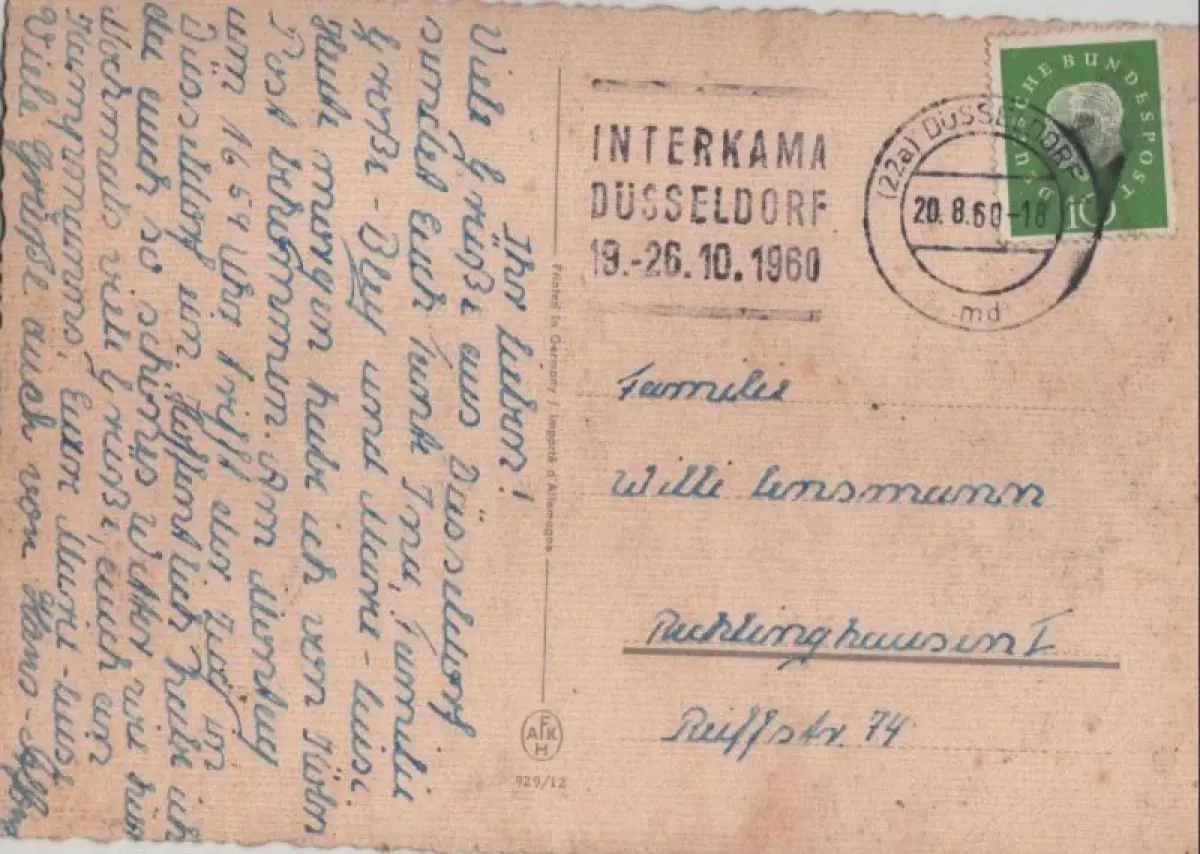 Ihr lieben!
Viele Grüße aus Düsseldorf
sendet Euch Tante Ina, Familie
Große- und Marie-Luise.
Heute morgen habe ich von
Post bekommen. Am Montag
um 16 54 Uhr trifft der Zug in
Düsseldorf ein. Hoffentlich habe ich
da auch so schönes Wetter wie hier
Nochmals viele Grüße, auch an
Eure Marie-Luise
Viele Grüße auch von Hans-
INTERKAMA
DÜSSELDORF
19.-26.10.1960
(22a) DÜSSELDORF
20.8.60-18
md
DEUTSCHE BUNDESPOST
10
Familie
Willi Ensmann
Recklinghausen I
Reiffstr 74
Printed in Germany / Importé d'Allemagne
AFKH
929/12